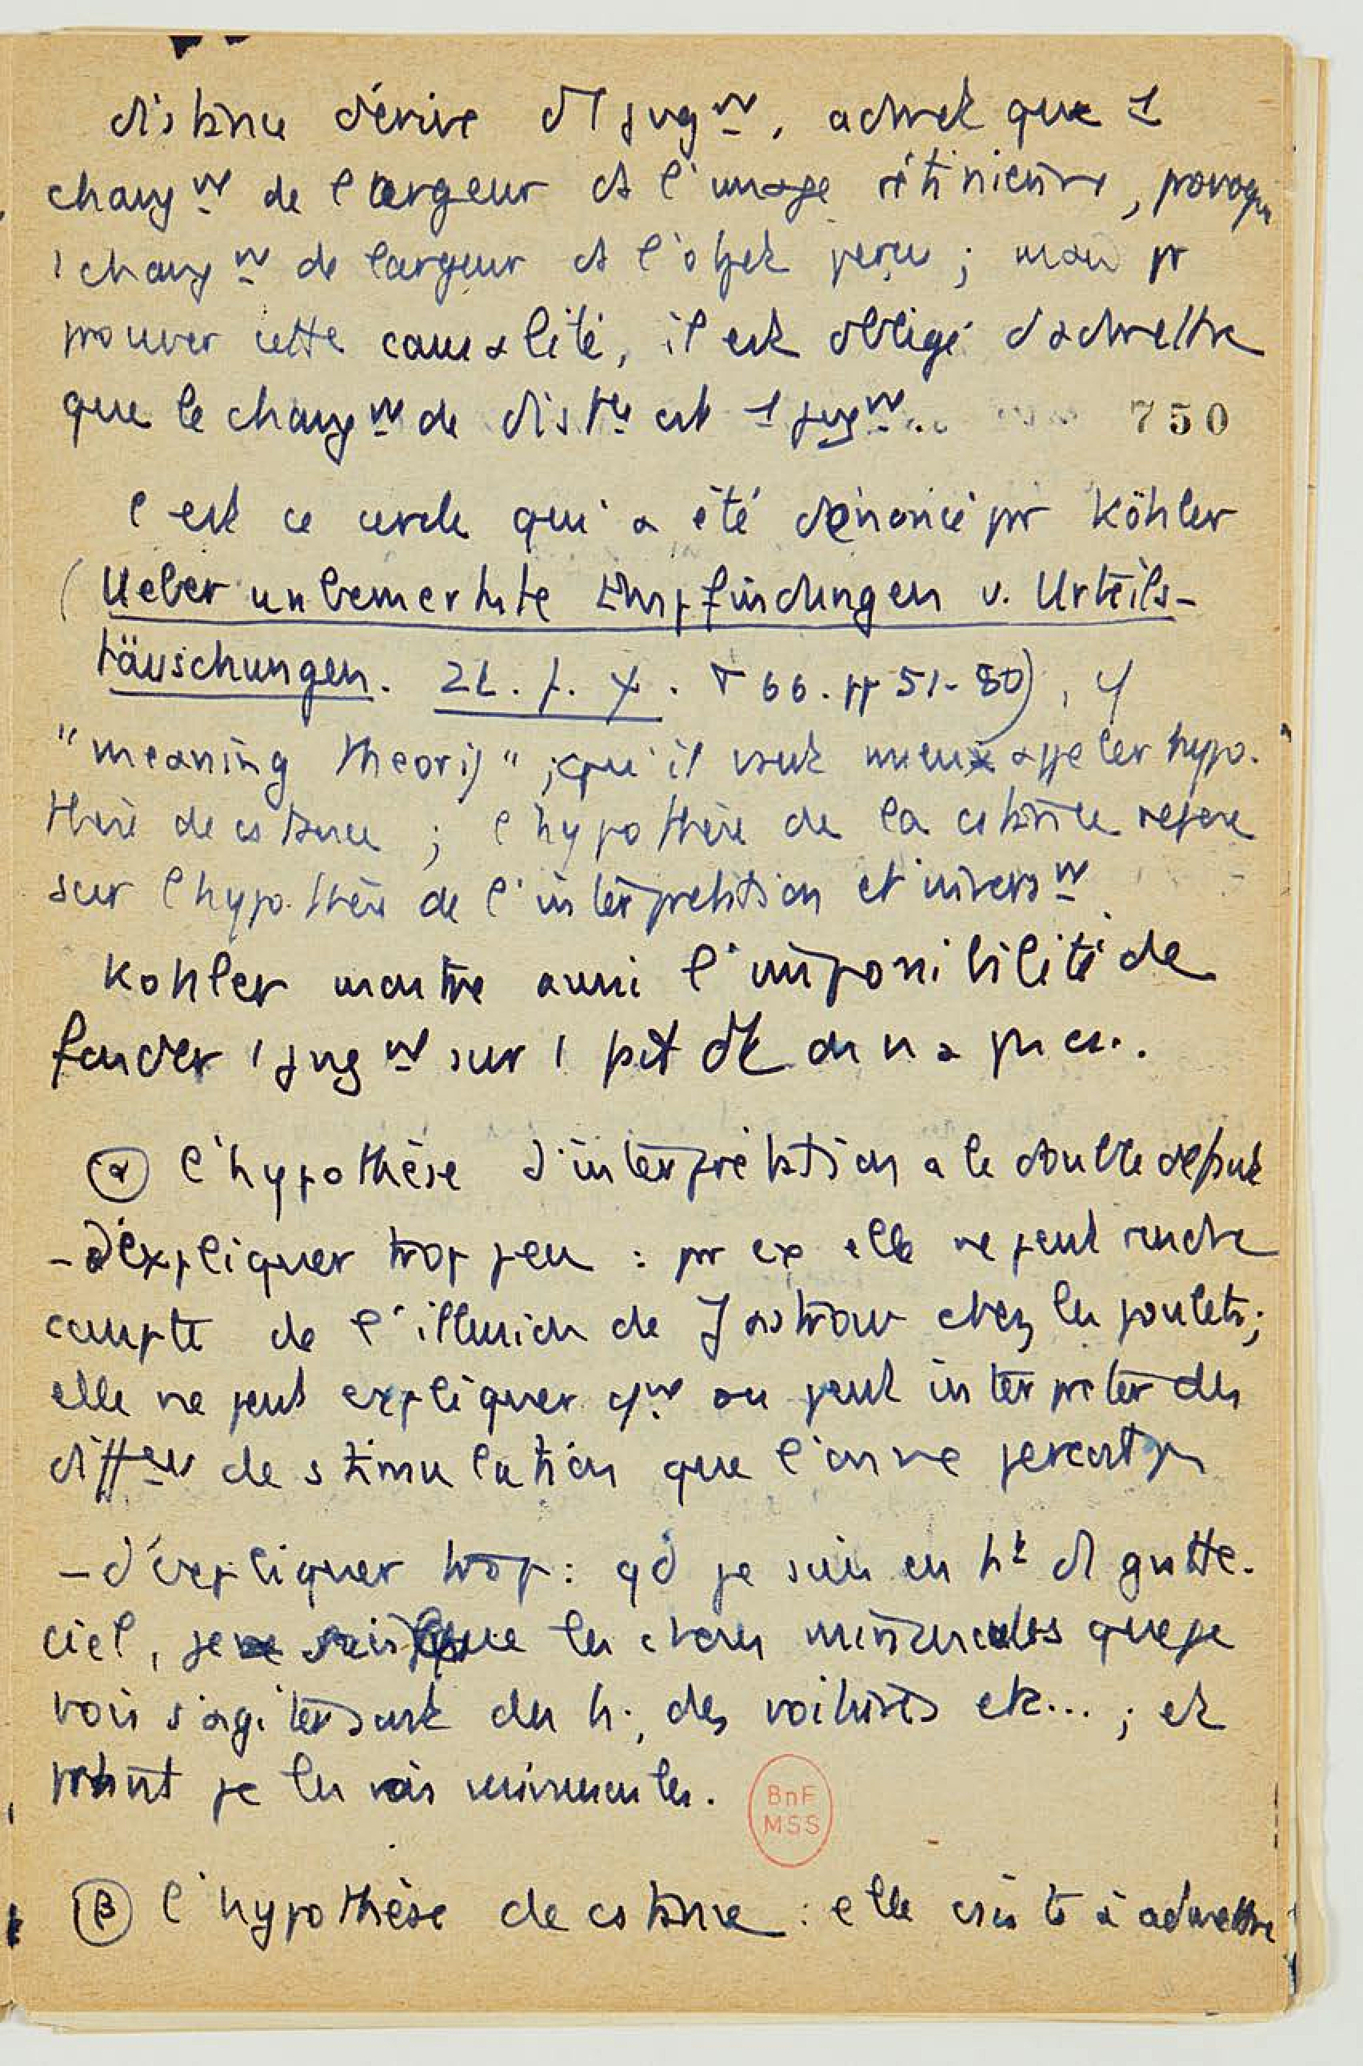 distance dérive d'1 jugmt, admet que 1
changmt de largeur ds l'image rétinienne, provoque
1 changmt de largeur ds l'objet perçu ; mais pr
prouver cette causalité, il est obligé d'admettre
que le changmt de distce est 1 jugmt..
750
C'est ce cercle qui a été dénoncé par Köhler
(Ueber unbemerkte Empfindungen u. Urteils-
täuschungen. Zt. f. ψ. T 66. pp 51-80), cf
"meaning theory" ; qu'il vaut mieux appeler hypo-
thèse de cstance ; l'hypothèse de la cstance repose
sur l'hypothèse de l'interprétation et inversmt
Kohler montre aussi l'impossibilité de
fonder 1 jugmt sur 1 dt on n'a pas cs..
(α) l'hypothèse d'interprétation a le double défaut
- d'expliquer trop peu : par ex elle ne peut rendre
compte de l'illusion de Jastrow chez les poulets ;
elle ne peut expliquer cmt on peut interpréter des
différces de stimulation que l'on ne perçoit pas
- d'expliquer trop : qd je suis en ht du gratte-
ciel, je sais que les choses minuscules que je
vois s'agiter sont des h., des voitures etc... ; et
portant je les vois minuscules.
BnF
MSS
(β) l'hypothèse de cstance : elle csiste à admettre